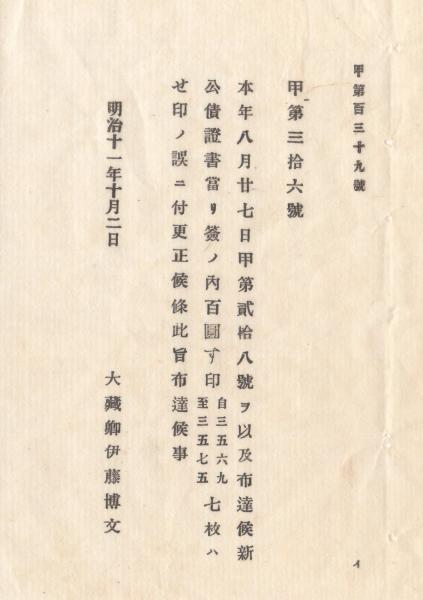 甲第百三十九號
甲第三拾六號
本年八月廿七日甲第貳拾八號ヲ以及布達候新
公債證書當リ簽ノ內百圓す印自三五六九至三五七五七枚ハ
せ印ノ誤ニ付更正候條此旨布達候事
明治十一年十月二日
大藏卿伊藤博文
イ